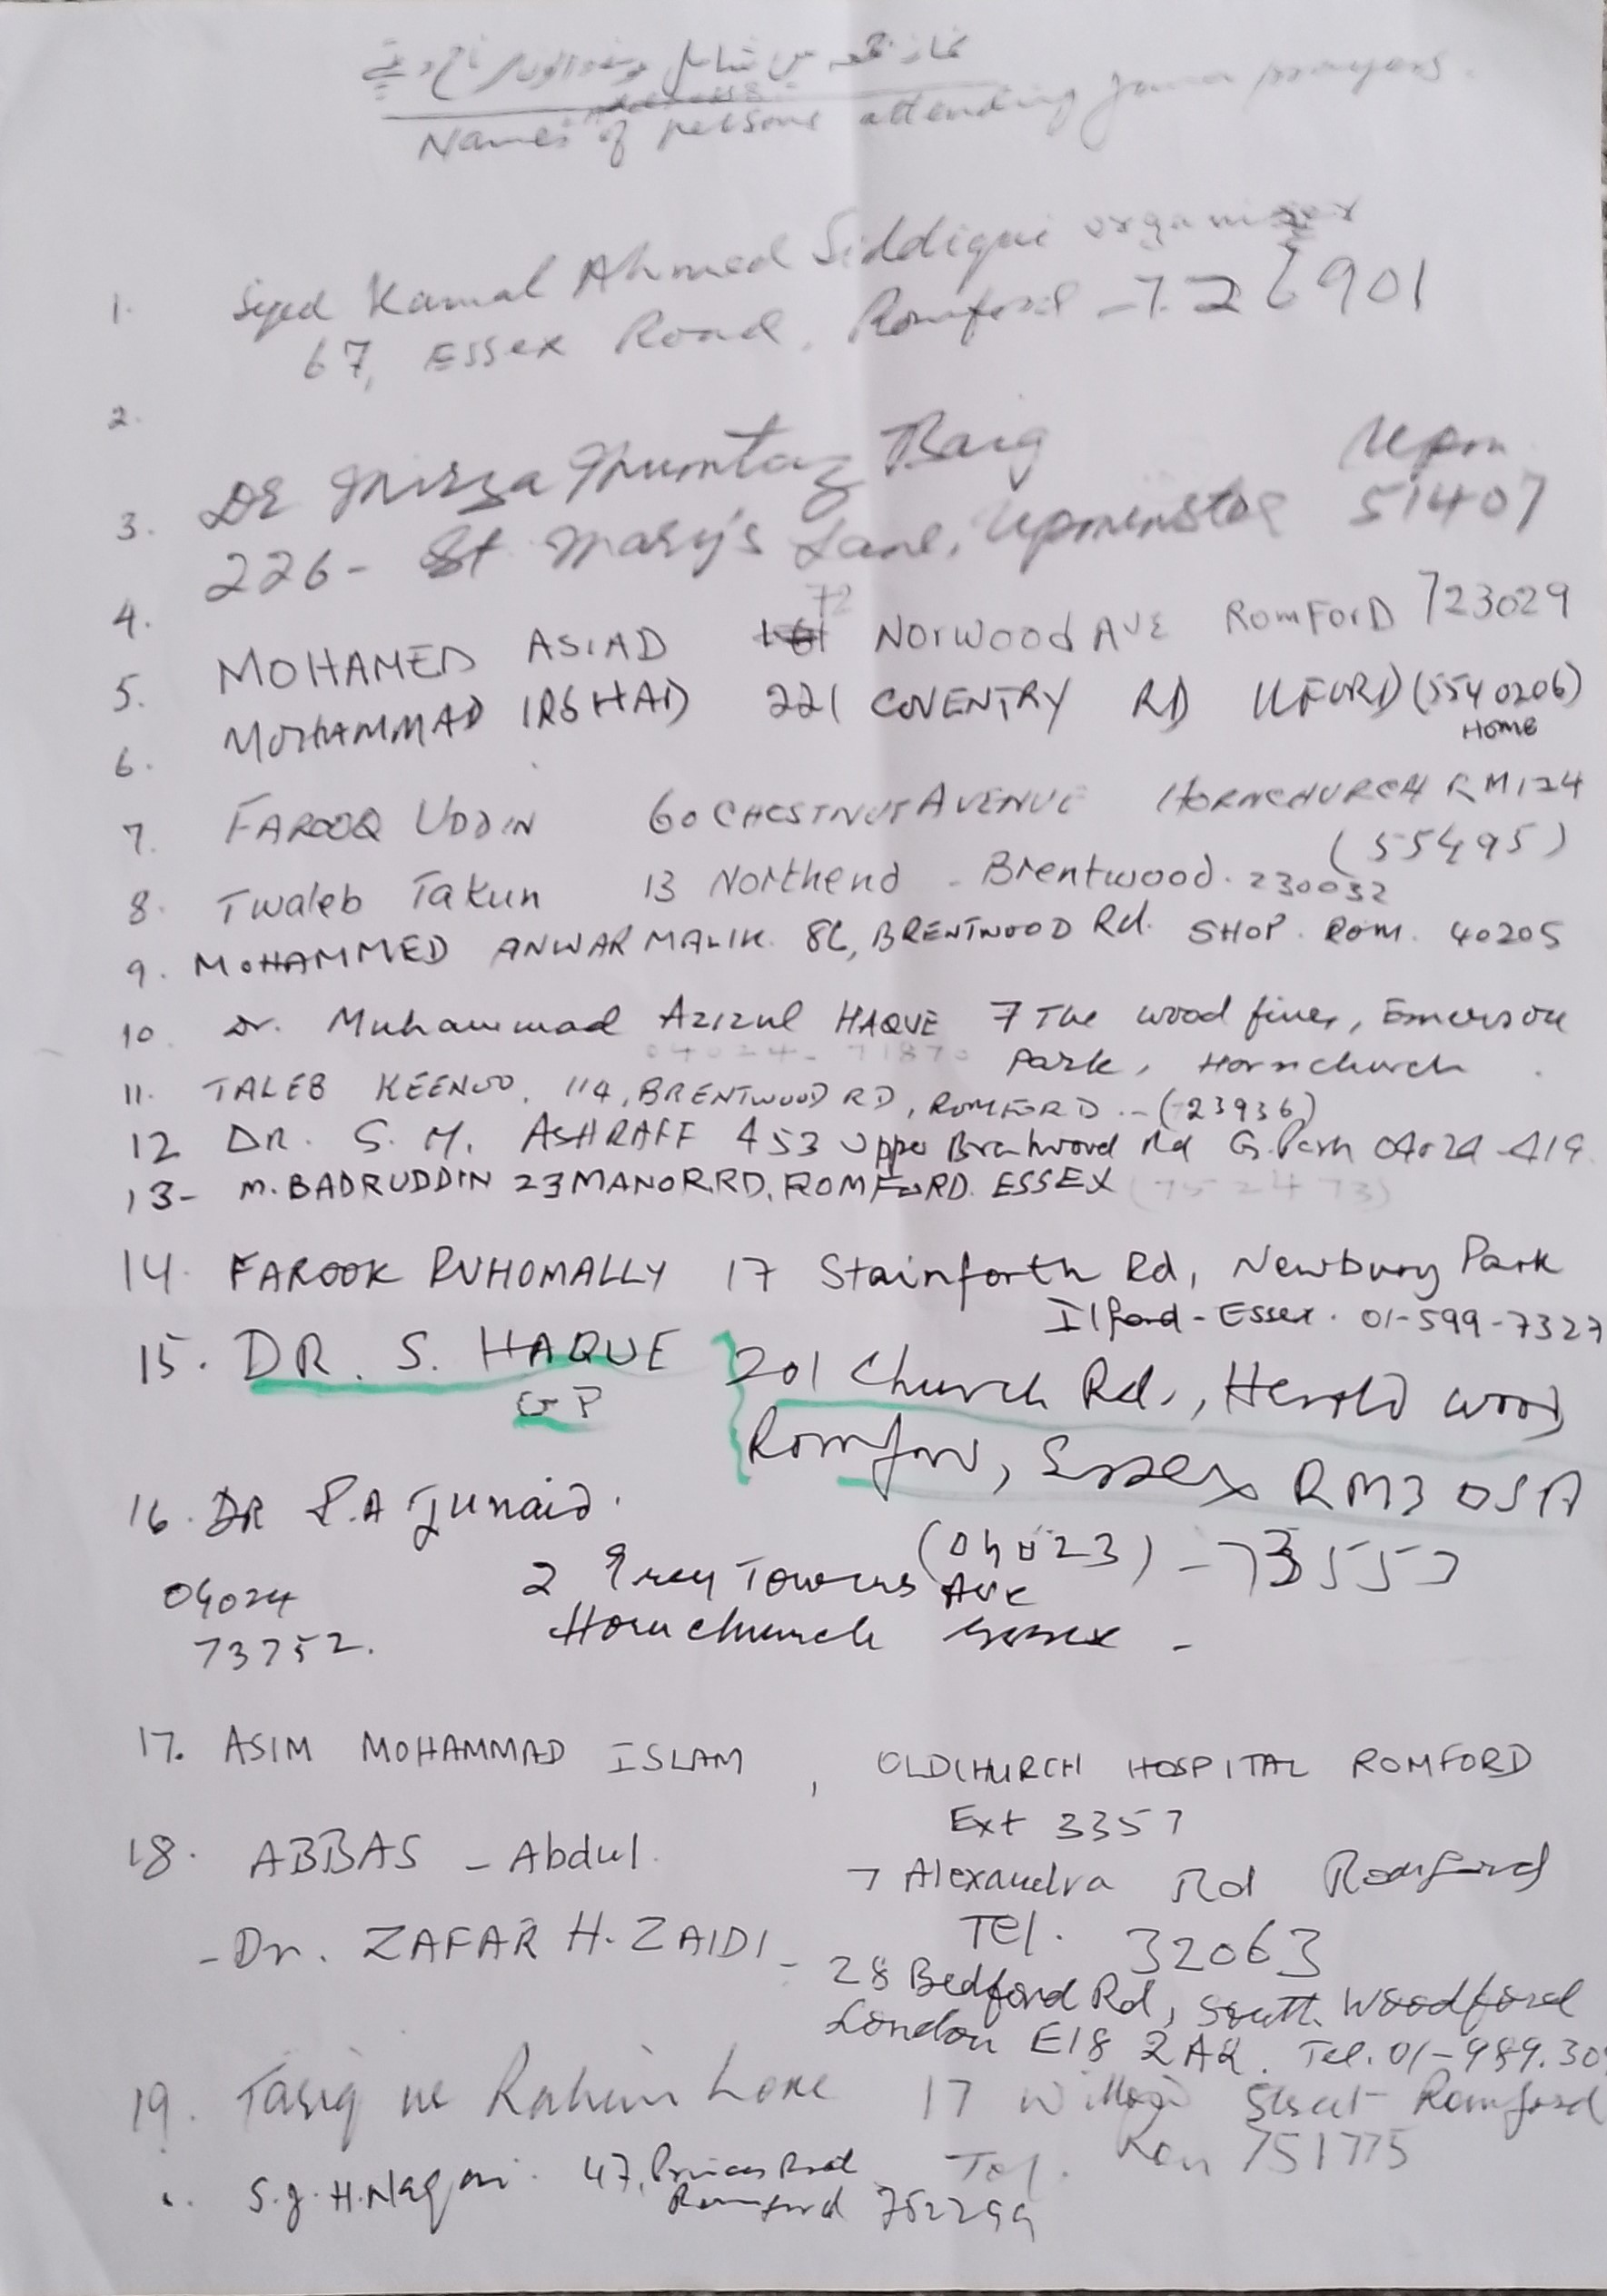 نماز جمعہ میں شامل ہونے والوں
Address
Names of persons attending Juma prayers.
1. Syed Kamal Ahmed Siddiqui organizer
67, Essex Road, Romford - 7.26901
2.
3. DR Mirza Mumtaz Baig Upm
226 - St Mary's Lane, Upminster 51407
4.
72
5. MOHAMED ASIAD NORWOOD AVE ROMFORD 723029
6. MOHAMMAD IRSHAD 221 COVENTRY RD ILFORD (5540206)
HOME
7. FAROOQ UDDIN 60 CHESTNUT AVENUE HORNCHURCH RM124
(55495)
8. Twaleb Takun 13 Northend - Brentwood. 230032
9. MOHAMMED ANWAR MALIK. 86, BRENTWOOD Rd. SHOP. ROM. 40205
10. Dr. Muhammad Azizul HAQUE 7 The wood fines, Emerson
04024-71870 Park, Hornchurch.
11. TALEB KEENOO, 114, BRENTWOOD RD, ROMFORD - (23936)
12 DR. S. M. ASHRAFF 453 Upper Brentwood Rd G. Park 04024-419
13- M. BADRUDDIN 23 MANOR RD. ROMFORD. ESSEX (752473)
14. FAROOK RUHOMALLY 17 Stainforth Rd, Newbury Park
Ilford - Essex. 01-599-7327
15. DR. S. HAQUE 201 Church Rd., Herold wood
GP Romford, Essex RM3 0SA
16. DR S.A Junaid. (04023) - 73557
04024 2 Grey Towers Ave
73752. Hornchurch Essex -
17. ASIM MOHAMMAD ISLAM, OLDCHURCH HOSPITAL ROMFORD
Ext 3357
18. ABBAS - Abdul. 7 Alexandra Rd Romford
Tel. 32063
- Dr. ZAFAR H. ZAIDI - 28 Bedford Rd, South Woodford
London E18 2AQ. Tel. 01-989.30
19. Tariq ur Rahim Lone 17 Street Romford
Tel. Rom 751775
S.J.H. Naqvi. 47, Princes Road
Romford 762299